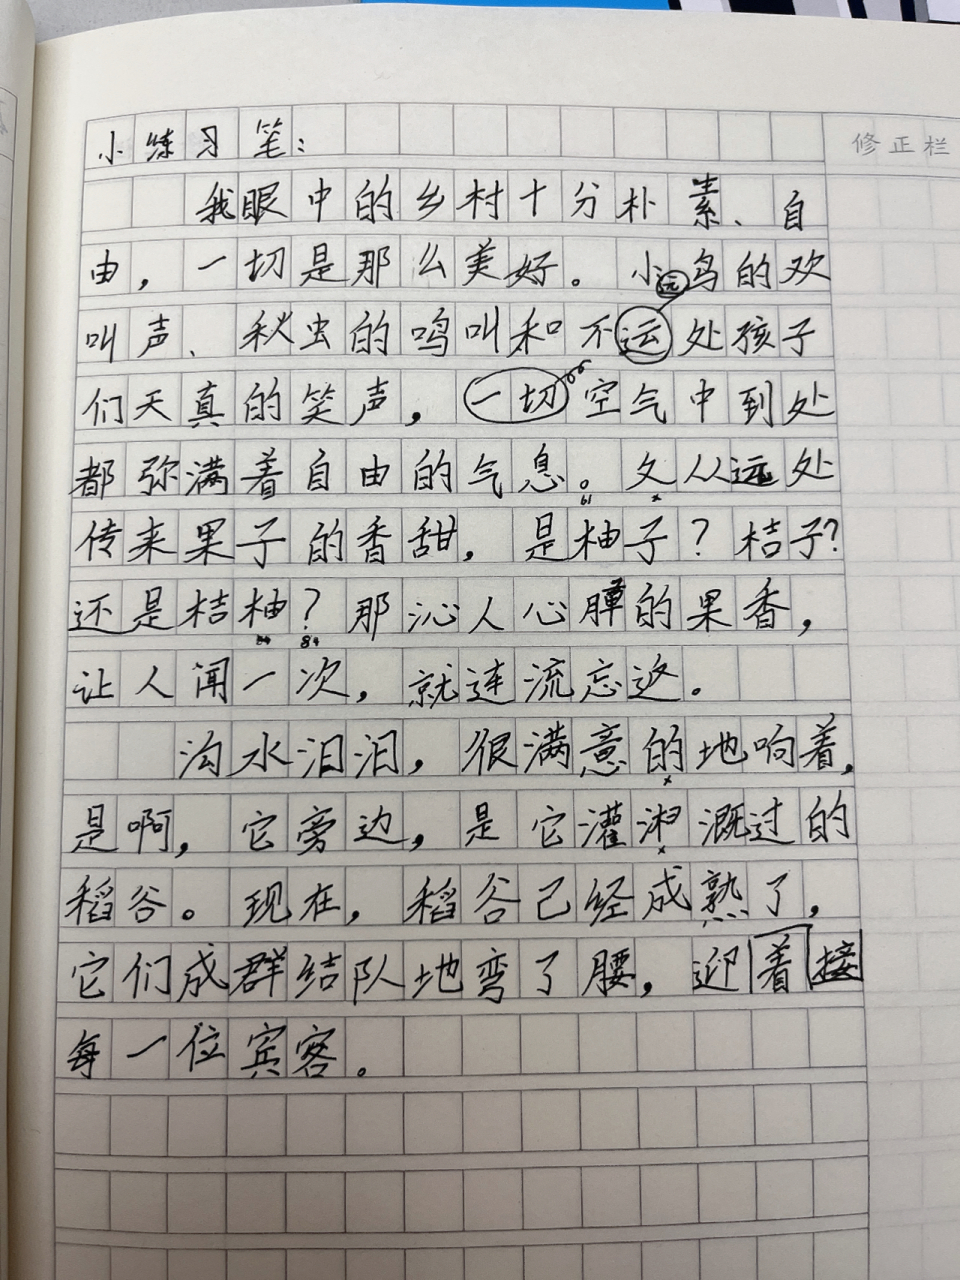 小练习笔：
修正栏
我眼中的乡村十分朴素、自
由，一切是那么美好。小鸟的欢
远
叫声、秋虫的鸣叫和不运处孩子
们天真的笑声，一切空气中到处
都弥满着自由的气息。文从远处
传来果子的香甜，是柚子？桔子？
还是桔柚？那沁人心脾的果香，
让人闻一次，就连流忘返。
沟水汩汩，很满意的地响着，
是啊，它旁边，是它灌溉过的
稻谷。现在，稻谷已经成熟了，
它们成群结队地弯了腰，迎着接
每一位宾客。